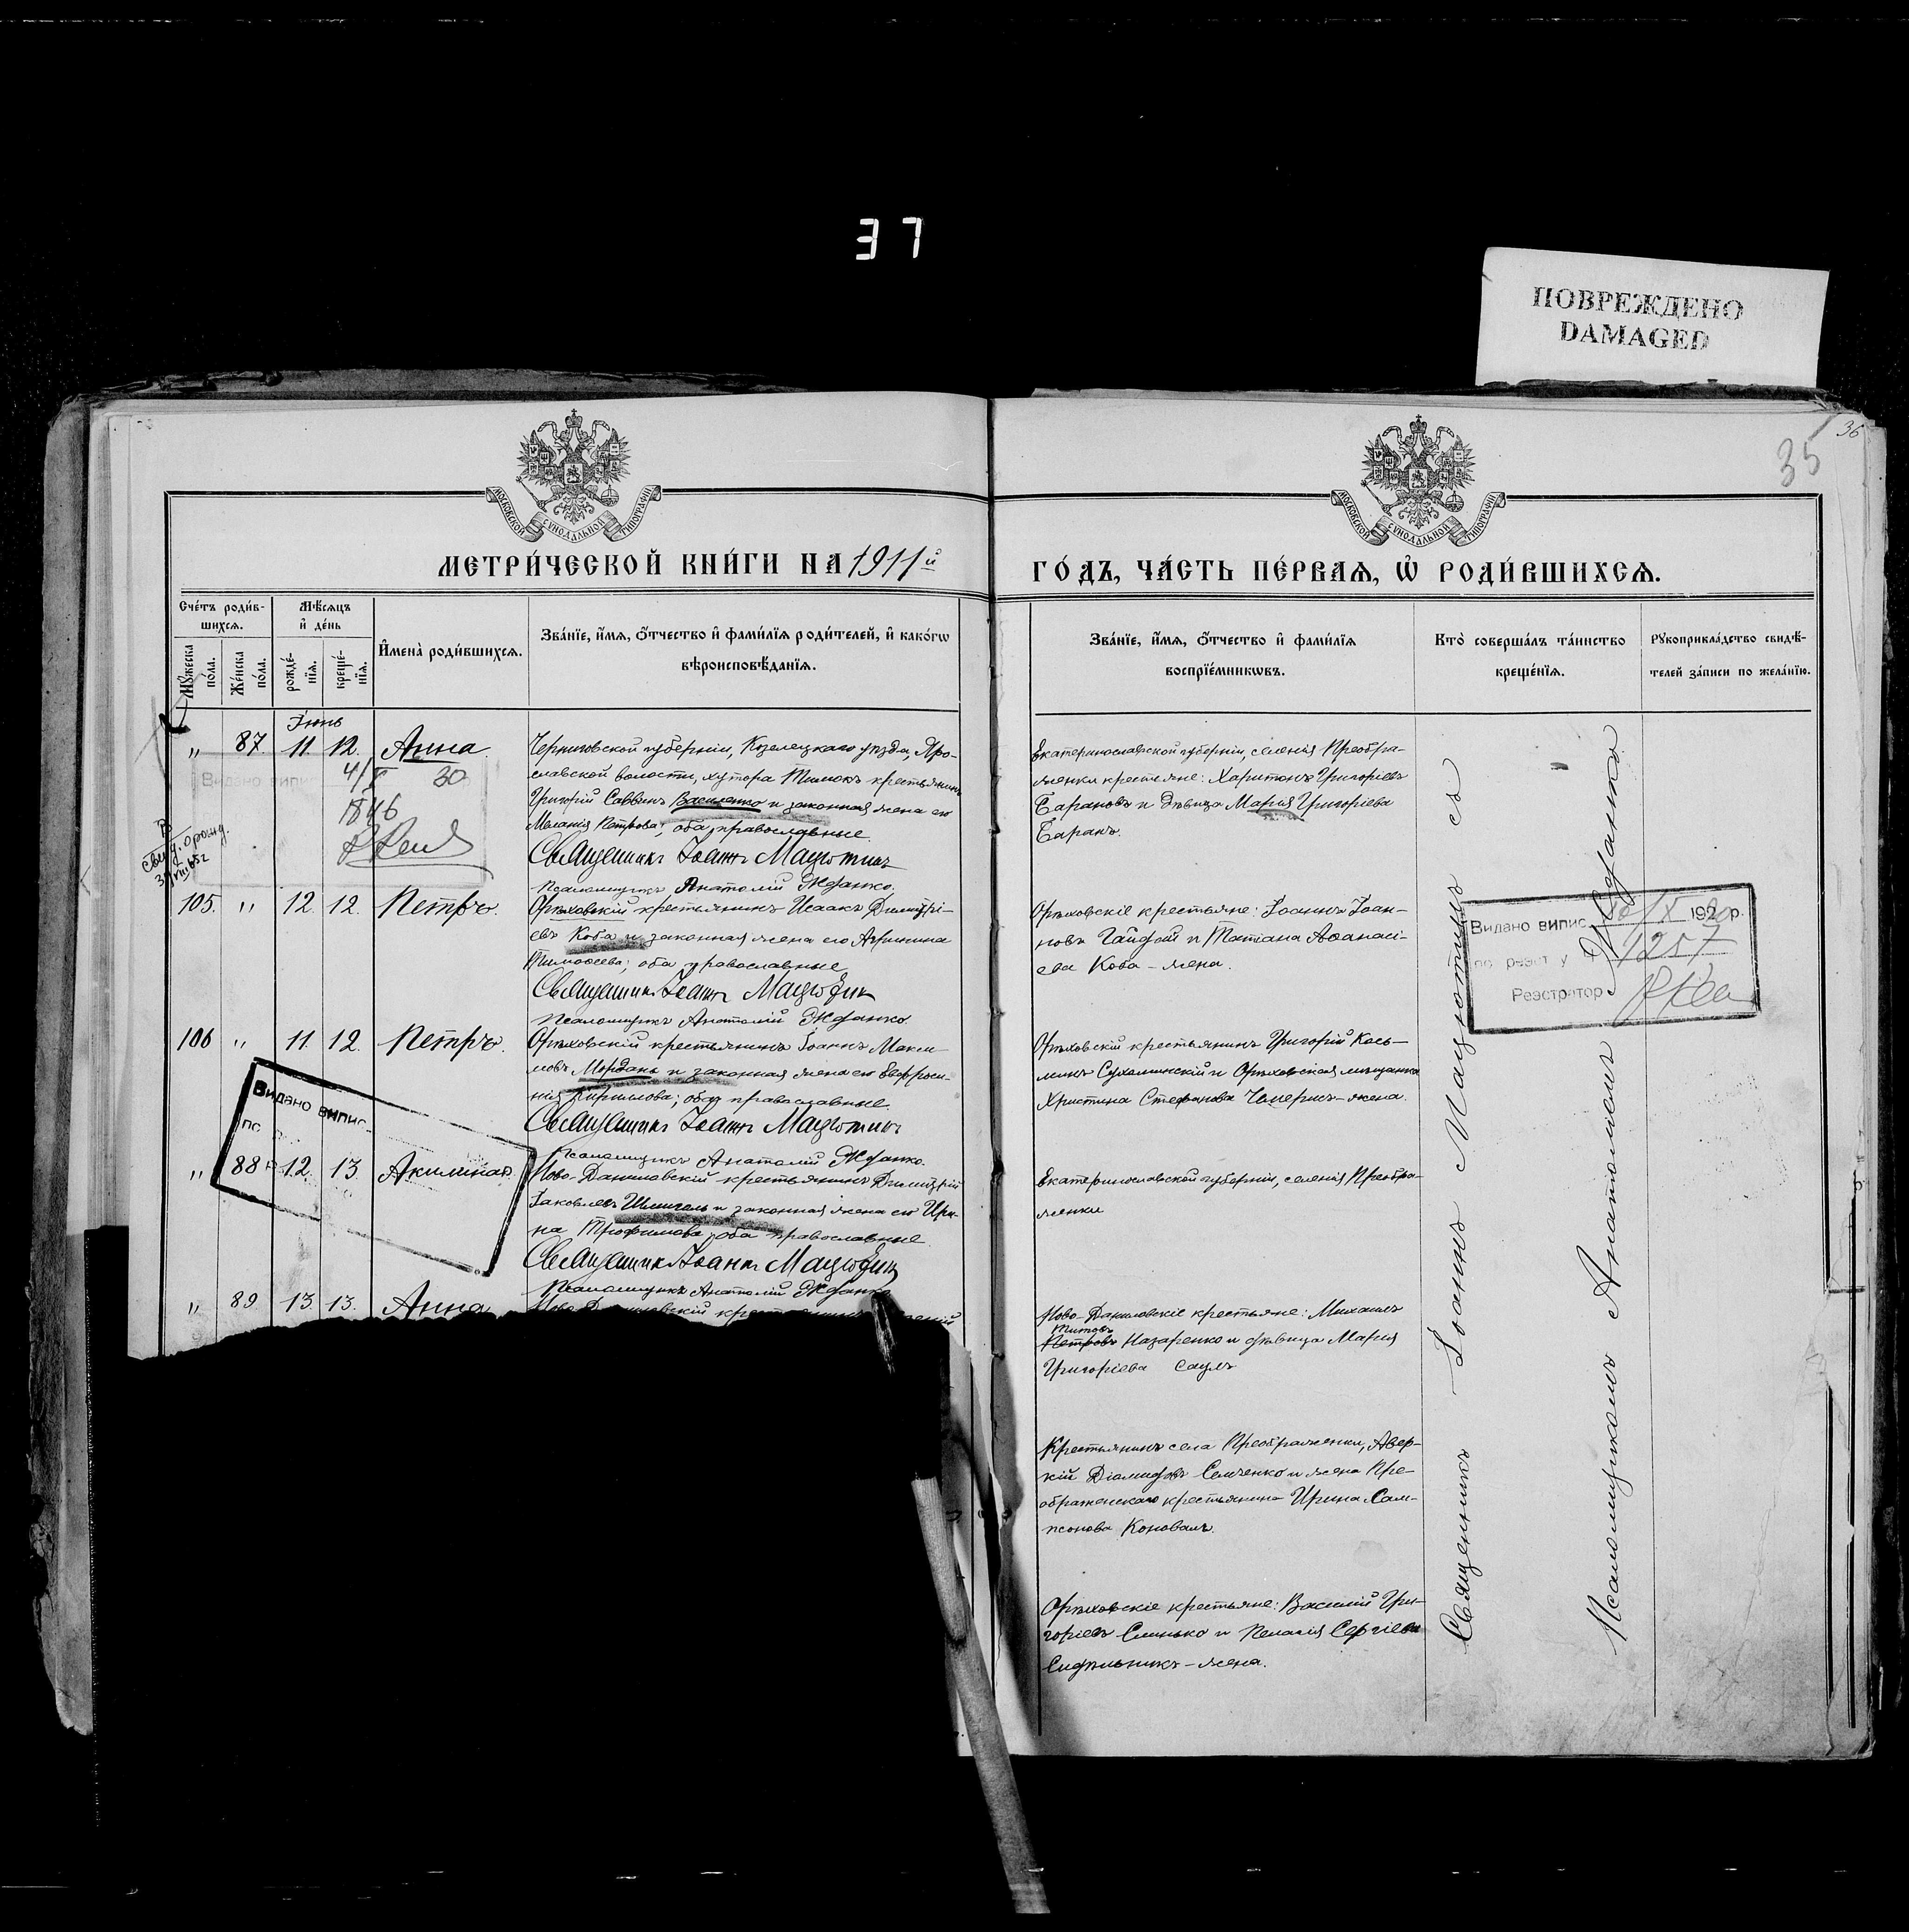 37
ПОВРЕЖДЕНО
DAMAGED
36
35
МОСКОВСКОЙ СѴНОДАЛЬНОЙ ТИПОГРАФІИ
МОСКОВСКОЙ СѴНОДАЛЬНОЙ ТИПОГРАФІИ
МЕТРИ́ЧЕСКОЙ КНИ́ГИ НА 1911й
ГО́ДЪ, ЧА́СТЬ ПЕ́РВАѦ, Ѡ҆ РОДИ́ВШИХСѦ.
Сче́тъ роди́в-
шихсѧ.
Мѣ́сѧцъ
и҆ де́нь
Мꙋ́жеска
по́ла.
Же́нска
по́ла.
рожде́-
нїѧ.
креще́-
нїѧ.
И҆мена̀ роди́вшихсѧ.
Зва́нїе, и҆́мѧ, ѻ҆́тчество и҆ фами́лїѧ роди́телей, и҆ како́гѡ
вѣроисповѣ́данїѧ.
Зва́нїе, и҆́мѧ, ѻ҆́тчество и҆ фами́лїѧ
воспрїе́мникѡвъ.
Кто̀ соверша́лъ та́инство
креще́нїѧ.
Рꙋкоприкла́дство свидѣ́-
телей за́писи по жела́нїю.
Іюнь
" 87 11. 12. Анна.
Черниговской губерніи, Козелецкаго уѣзда, Яро-
славской волости, хутора Тимокъ крестьянинъ
Григорій Саввинъ Василенко и законная жена его
Меланія Петрова; оба православные
Священникъ Іоаннъ Мацютинъ
Псаломщикъ Анатолій Жданко.
Екатеринославской губерніи, селенія Преобра-
женки крестьяне: Харитонъ Григорьевъ
Барановъ и дѣвица Марія Григоріева
Баранъ.
Видано випис
4/X 30
1846
105. " 12. 12. Петръ.
Орѣховскій крестьянинъ Исаакъ Димитрі-
евъ Коба и законная жена его Агрипина
Тимоѳеева; оба православные
Священникъ Іоаннъ Мацютин
Псаломщикъ Анатолій Жданко
Орѣховскіе крестьяне: Іоаннъ Іоан-
новъ Гайдай и Татіана Аѳанасі-
ева Коба – жена.
Видано випис 192 р.
по реэстру 1257
Реэстратор
106 " 11. 12. Петръ.
Орѣховскій крестьянинъ Іоаннъ Макси-
мовъ Мордань и законная жена его Евфроси-
нія Кирилова; оба православные.
Священникъ Іоаннъ Мацютинъ
Псаломщикъ Анатолій Жданко.
Орѣховскій крестьянинъ Григорій Кось-
минъ Сухомлинскій и Орѣховская мѣщанка
Христина Стефанова Чаперисъ – жена.
Видано випис
" 88 12. 13. Акилина.
Ново-Даниловскій крестьянинъ Димитрій
Іаковлевъ Шмигель и законная жена его Ири-
на Трофимова; оба православные
Священник Іоаннъ Мацютин
Псаломщикъ Анатолій Жданко
Екатеринославской губерніи, селенія Преобра-
женки
" 89 13. 13. Анна
Ново-Даниловскій крестьянинъ
Ново-Даниловскіе крестьяне: Михаилъ
Титовъ
Петровъ Назаренко и дѣвица Марія
Григоріева Саулъ
Крестьянинъ села Преображенки, Авер-
кій Діомидовъ Семченко и жена Пре-
ображенскаго крестьянина Ирина Сам-
псонова Коновалъ.
Орѣховскіе крестьяне: Василій Гри-
горіевъ Слинько и Пелагія Сергіева
Сидѣльникъ – жена.
Священникъ Іоаннъ Мацютинъ съ
Псаломщикомъ Анатоліемъ Жданко